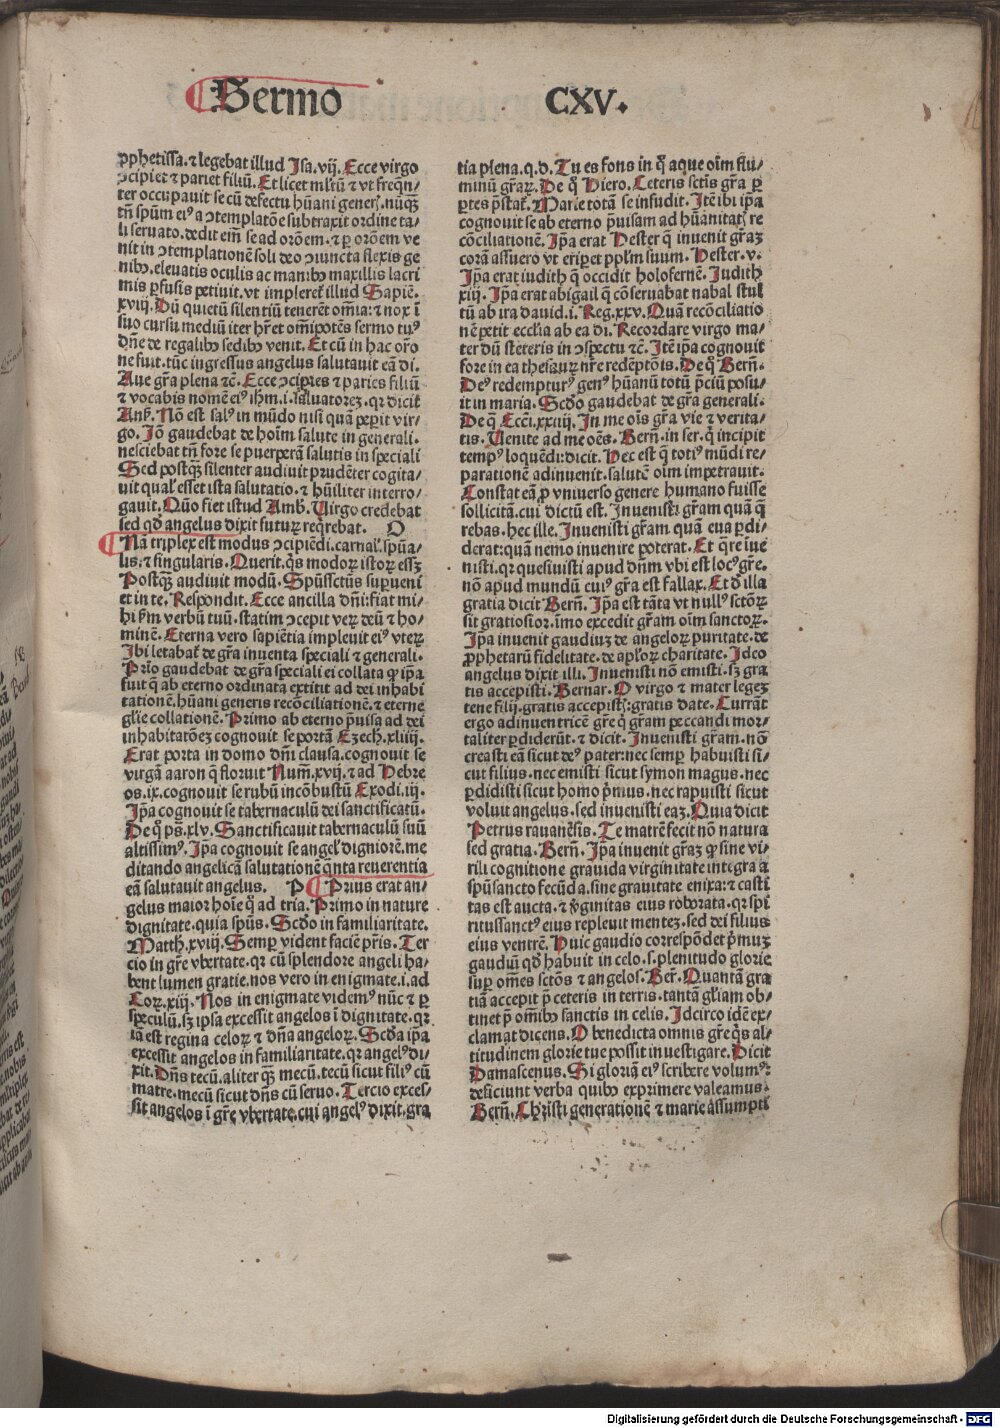 Sermo CXV.
ꝓphetissa. ⁊ legebat illud Isa. vij. Ecce virgo
ↄcipiet ⁊ pariet filiū. Et licet ml̓tū ⁊ vt freqn̄-
ter occupauit se cū defectu hūani gener̄. nūqꝫ
tn̄ spūm eiꝰ a ↄtemplatōe subtraxit ordine ta-
li seruato. dedit em̄ se ad orōem. ⁊ ꝑ orōem ve
nit in ↄtemplationē soli deo ↄiuncta flexis ge
nibꝰ. eleuatis oculis ac manibꝰ maxillis lacri
mis ꝑfusis petiuit. vt impleret̄ illud Sapiē.
xviij. Dū quietū silentiū tenerēt om̄ia: ⁊ nox ī
suo cursu mediū iter hr̄et om̄ipotēs sermo tuꝰ
dn̄e de regalibꝰ sedibꝰ venit. Et cū in hac or̄o
ne fuit. tūc ingressus angelus salutauit eā di.
Aue gr̄a plena ⁊c̄. Ecce ↄcipies ⁊ paries filiū
⁊ vocabis nomē eiꝰ ih̄m. i. saluatoreꝫ. qr dicit
Anb̄. Nō est salꝰ in mūdo nisi quā peꝑit vir-
go. Iō gaudebat de hoīm salute in generali.
nesciebat tn̄ fore se puerperā salutis in speciali
Sed postqꝫ silenter audiuit prudēter cogita-
uit qual̓ esset ista salutatio. ⁊ hūiliter interro-
gauit. Quō fiet istud Amb̄. Virgo credebat
sed qd̓ angelus dixit futurꝝ reqrebat. O
Nā triplex est modus ↄcipiēdi. carnal̓. spūa-
lis. ⁊ singularis. Querit. qs modoꝝ istoꝝ esſꝫ
Postqꝫ audiuit modū. Spūssctūs suꝑueni
et in te. Respondit. Ecce ancilla dn̄i: fiat mi-
hi ẜm verbū tuū. statim ↄcepit veꝝ deū ⁊ ho-
minē. Eterna vero sapiētia impleuit eiꝰ vteꝝ
Ibi letabat̄ de gr̄a inuenta speciali ⁊ generali.
Prīo gaudebat de gr̄a speciali ei collata qꝫ ip̄a
fuit q̄ ab eterno ordinata extitit ad dei inhabi
tationē. hūani generis recōciliationē. ⁊ eterne
gl̓ie collationē. Primo ab eterno p̄uisa ad dei
inhabitatōeꝫ cognouit se portā Ezech. xliiij.
Erat porta in domo dn̄i clausa. cognouit se
virgā aaron q̄ floruit Num̄. xvij. ⁊ ad Hebre
os. ix. cognouit se rubū incōbustū Exodi. iij.
Ip̄a cognouit se tabernaculū dei sanctificatū.
De q̄ ps̄. xlv. Sanctificauit tabernaculū suū
altissimꝰ. Ip̄a cognouit se angel̓ digniorē. me
ditando angelicā salutationē qn̄ta reuerentia
eā salutauit angelus. P Prius erat an-
gelus maior hoīe q̄ ad tria. Primo in nature
dignitate. quia spūs. Scd̓o in familiaritate.
Matth. xviij. Semꝑ vident faciē pr̄is. Ter
cio in gr̄e vbertate. qr cū splendore angeli ha-
bent lumen gratie. nos vero in enigmate. i. ad
Coꝝ. xiij. Nos in enigmate videmꝰ nūc ⁊ ꝑ
speculū. sꝫ ipsa excessit angelos ī dignitate. qr
ia est regina celoꝝ ⁊ dn̄a angeloꝝ. Scd̓a ip̄a
excessit angelos in familiaritate. qr angelꝰ di-
xit. Dn̄s tecū. aliter qꝫ mecū. tecū sicut filiꝰ cū
matre. mecū sicut dn̄s cū seruo. Tercio exces-
sit angelos ī gr̄e vbertate. cui angelꝰ dixit. gra
tia plena. q. d. Tu es fons in q̄ aque oīm flu-
minū gr̄aꝝ. De q̄ Hiero. Ceteris sctīs gr̄a ꝑ
ꝑtes p̄stat̄. Marie totā se infudit. Itē ibi ip̄a
cognouit se ab eterno p̄uisam ad hūanitatꝫ re
cōciliationē. Ip̄a erat Hester q̄ inuenit gr̄aꝫ
corā assuero vt eriꝑet ppl̓m suum. Hester. v.
Ip̄a erat iudith q̄ occidit holofernē. Judith
xiij. Ip̄a erat abigail q̄ cōseruabat nabal stul
tū ab ira dauid. i. Reg. xxv. Quā recōciliatio
nē petit ecclīa ab ea di. Recordare virgo ma-
ter dū steteris in ↄspectu ⁊c̄. Itē ip̄a cognouit
fore in ea thesauꝝ nr̄e redēptōis. De q̄ Bern̄.
Deꝰ redempturꝰ genꝰ hūanū totū p̄ciū posu-
it in maria. Scd̓o gaudebat de gr̄a generali.
De q̄ Ecci. xxiiij. In me oīs gr̄a vie ⁊ verita-
tis. Venite ad me oēs. Bern̄. in ser. q̄ incipit
tempꝰ loquēdi: dicit. Hec est q̄ totiꝰ mūdi re-
parationē adinuenit. salutē oīm impetrauit.
Constat eā ꝓ vniuerso genere humano fuisse
sollicitā. cui dictū est. Inuenisti gr̄am quā q̄
rebas. hec ille. Inuenisti gr̄am quā eua ꝑdi-
derat: quā nemo inuenire poterat. Et q̄re īue
nisti. qr quesiuisti apud dn̄m vbi est locꝰ gr̄e.
nō apud mundū cuiꝰ gr̄a est fallax. Et d̓ illa
gratia dicit Bern̄. Ip̄a est tāta vt nullꝰ sctōꝝ
sit gratiosior. īmo excedit gr̄am oīm sanctoꝝ.
Ip̄a inuenit gaudiuꝫ de angeloꝝ puritate. de
ꝓphetarū fidelitate. de apl̓oꝝ charitate. Idco
angelus dixit illi. Inuenisti nō emisti. sꝫ gra
tis accepisti. Bernar. O virgo ⁊ mater legeꝫ
tene filij. gratis accepistꝭ: gratis date. Currāt
ergo adinuentricē gr̄e q̄ gr̄am peccandi mor-
taliter ꝑdiderūt. ⁊ dicit. Inuenisti gr̄am. nō
creasti eā sicut deꝰ pater: nec semꝑ habuisti si-
cut filius. nec emisti sicut symon magus. nec
ꝑdidisti sicut homo p̄mus. nec rapuisti sicut
voluit angelus. sed inuenisti eaꝫ. Quia dicit
Petrus rauanēsis. Te matrē fecit nō natura
sed gratia. Bern̄. Ip̄a inuenit gr̄aꝫ qꝫ sine vi-
rili cognitione grauida virginitate integra a
spū sancto fecūda. sine grauitate enixa: ⁊ casti
tas est aucta. ⁊ v̓ginitas eius roborata. qr spī
ritussanctꝰ eius repleuit menteꝫ. sed dei filius
eius ventrē. Huic gaudio correspōdet p̄muꝫ
gaudiū qd̓ habuit in celo. s. plenitudo glorie
suꝑ om̄es sctōs ⁊ angelos. Ber̄. Quantā gra
tiā accepit p̄ ceteris in terris. tantā gl̓iam ob-
tinet p̄ om̄ibꝰ sanctis in celis. Idcirco idē ex-
clamat dicens. O benedicta omnis gr̄e q̄s al-
titudinem glorie tue possit inuestigare. Dicit
Damascenus. Si gloriā eiꝰ scribere volumꝰ:
deficiunt verba quibꝰ exprimere valeamus.
Bern̄. Christi generationē ⁊ marie assumpti
Digitalisierung gefördert durch die Deutsche Forschungsgemeinschaft - DFG